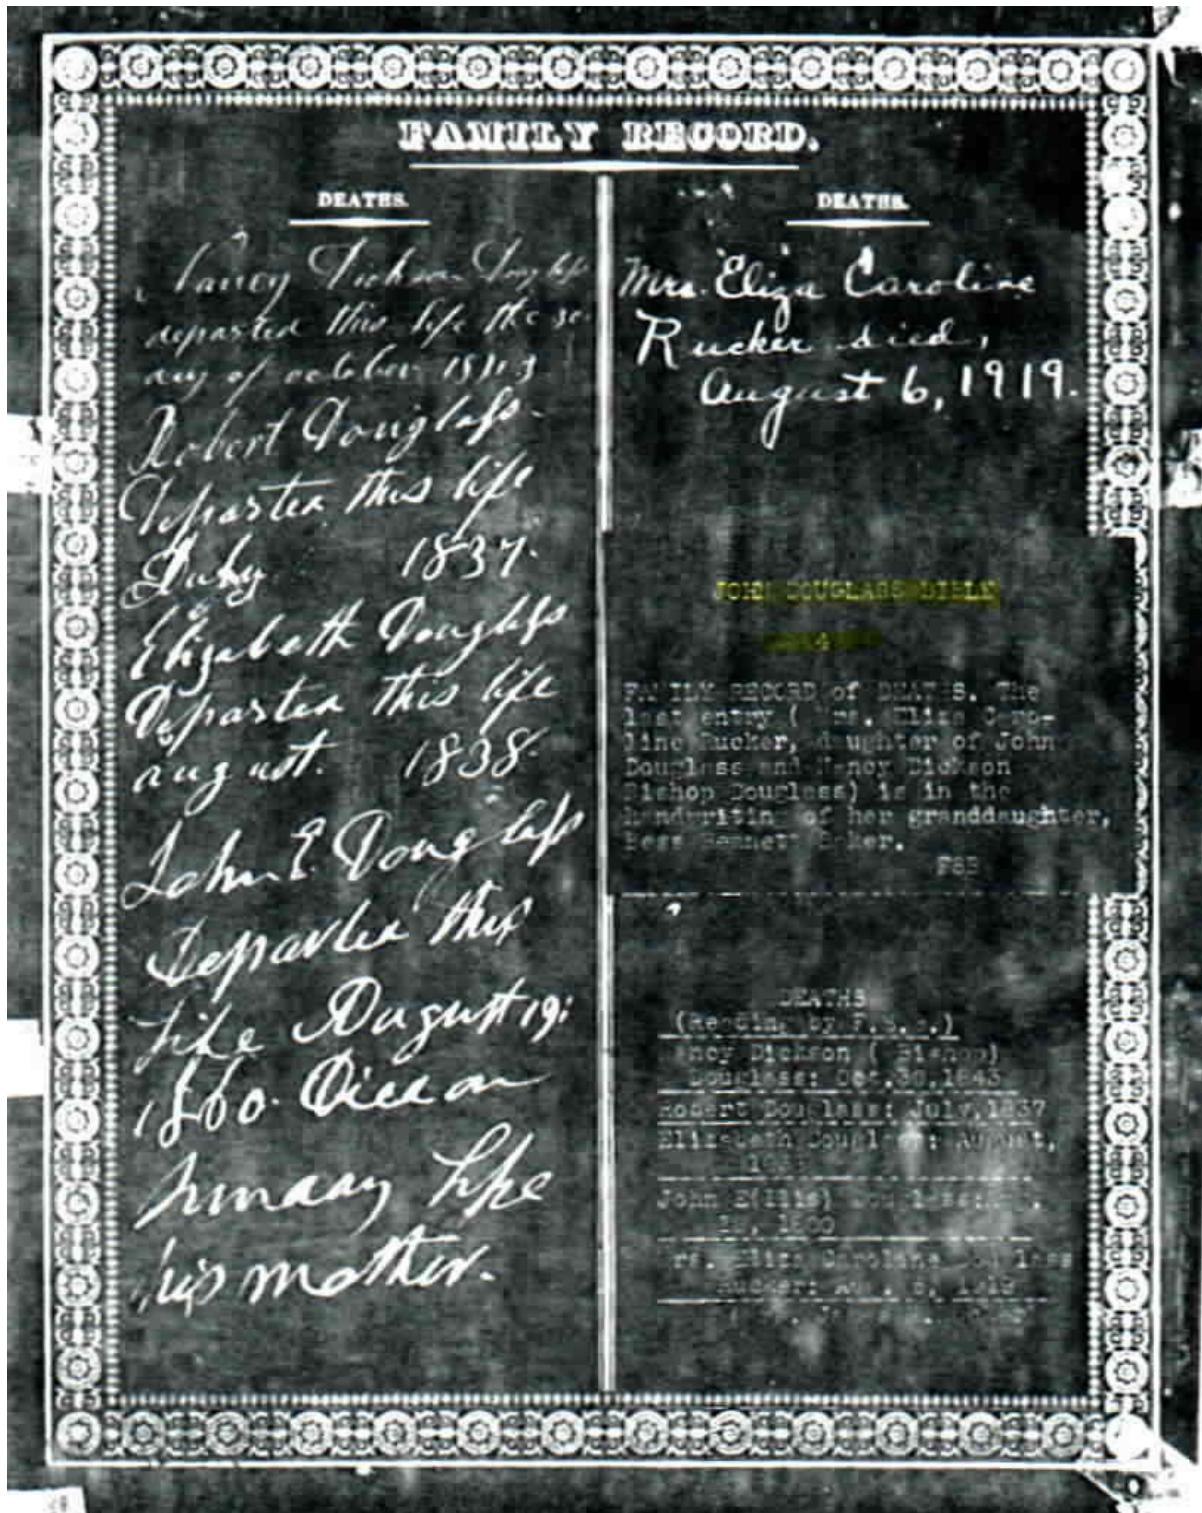 FAMILY RECORD.
DEATHS.
Nancy Dickson Douglass
departed this life the 30
day of october 1843
Robert Douglass.
Departed this life
July 1837.
Elizabeth Douglass
Departed this life
august. 1838.
John E. Douglass
Departed this
Life August 19:
1860. Died on
sunday like
his mother.
DEATHS.
Mrs. Eliza Caroline
Rucker died,
August 6, 1919.
JOHN DOUGLASS BIBLE
4
FAMILY RECORD of DEATHS. The
last entry ( Mrs. Eliza Caro-
line Rucker, daughter of John
Douglass and Nancy Dickson
Bishop Douglass) is in the
handwriting of her granddaughter,
Bess Bennett Baker.
DEATHS
Nancy Dickson ( Bishop)
Douglass: Oct.30,1843
Robert Douglass: July,1837
Elizabeth Douglass: August,
John E(llis) Douglass:
19, 1860
Mrs. Eliza Caroline Douglass
Rucker: Aug. 6, 1919